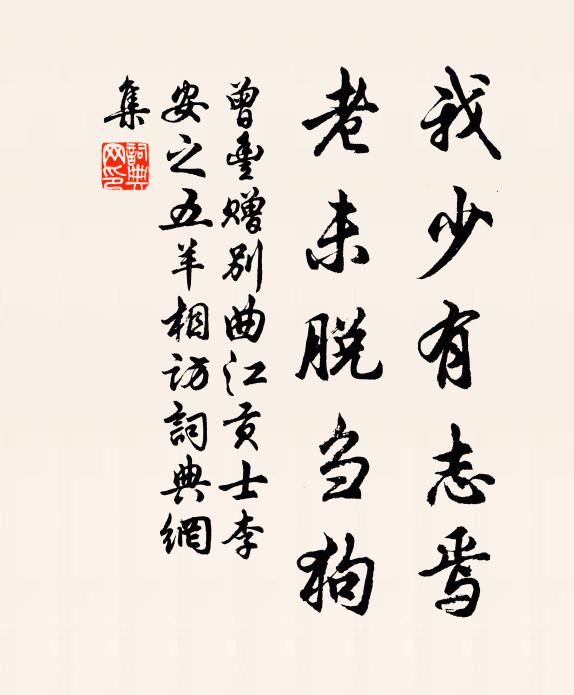 我少有志焉
老未脱刍狗
曾豊赠别曲江贡士李
安之五羊相访詞典網
集
詞典網印